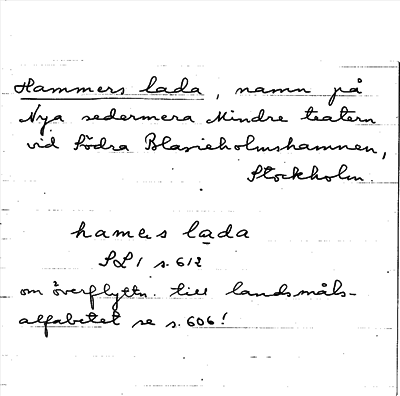 Hammers lada, namn på
Nya sedermera Mindre teatern
vid Södra Blasieholmshamnen,
Stockholm.
hamers lada
SL 1 s. 612
om överflyttn. till landsmåls-
alfabetet se s. 606!